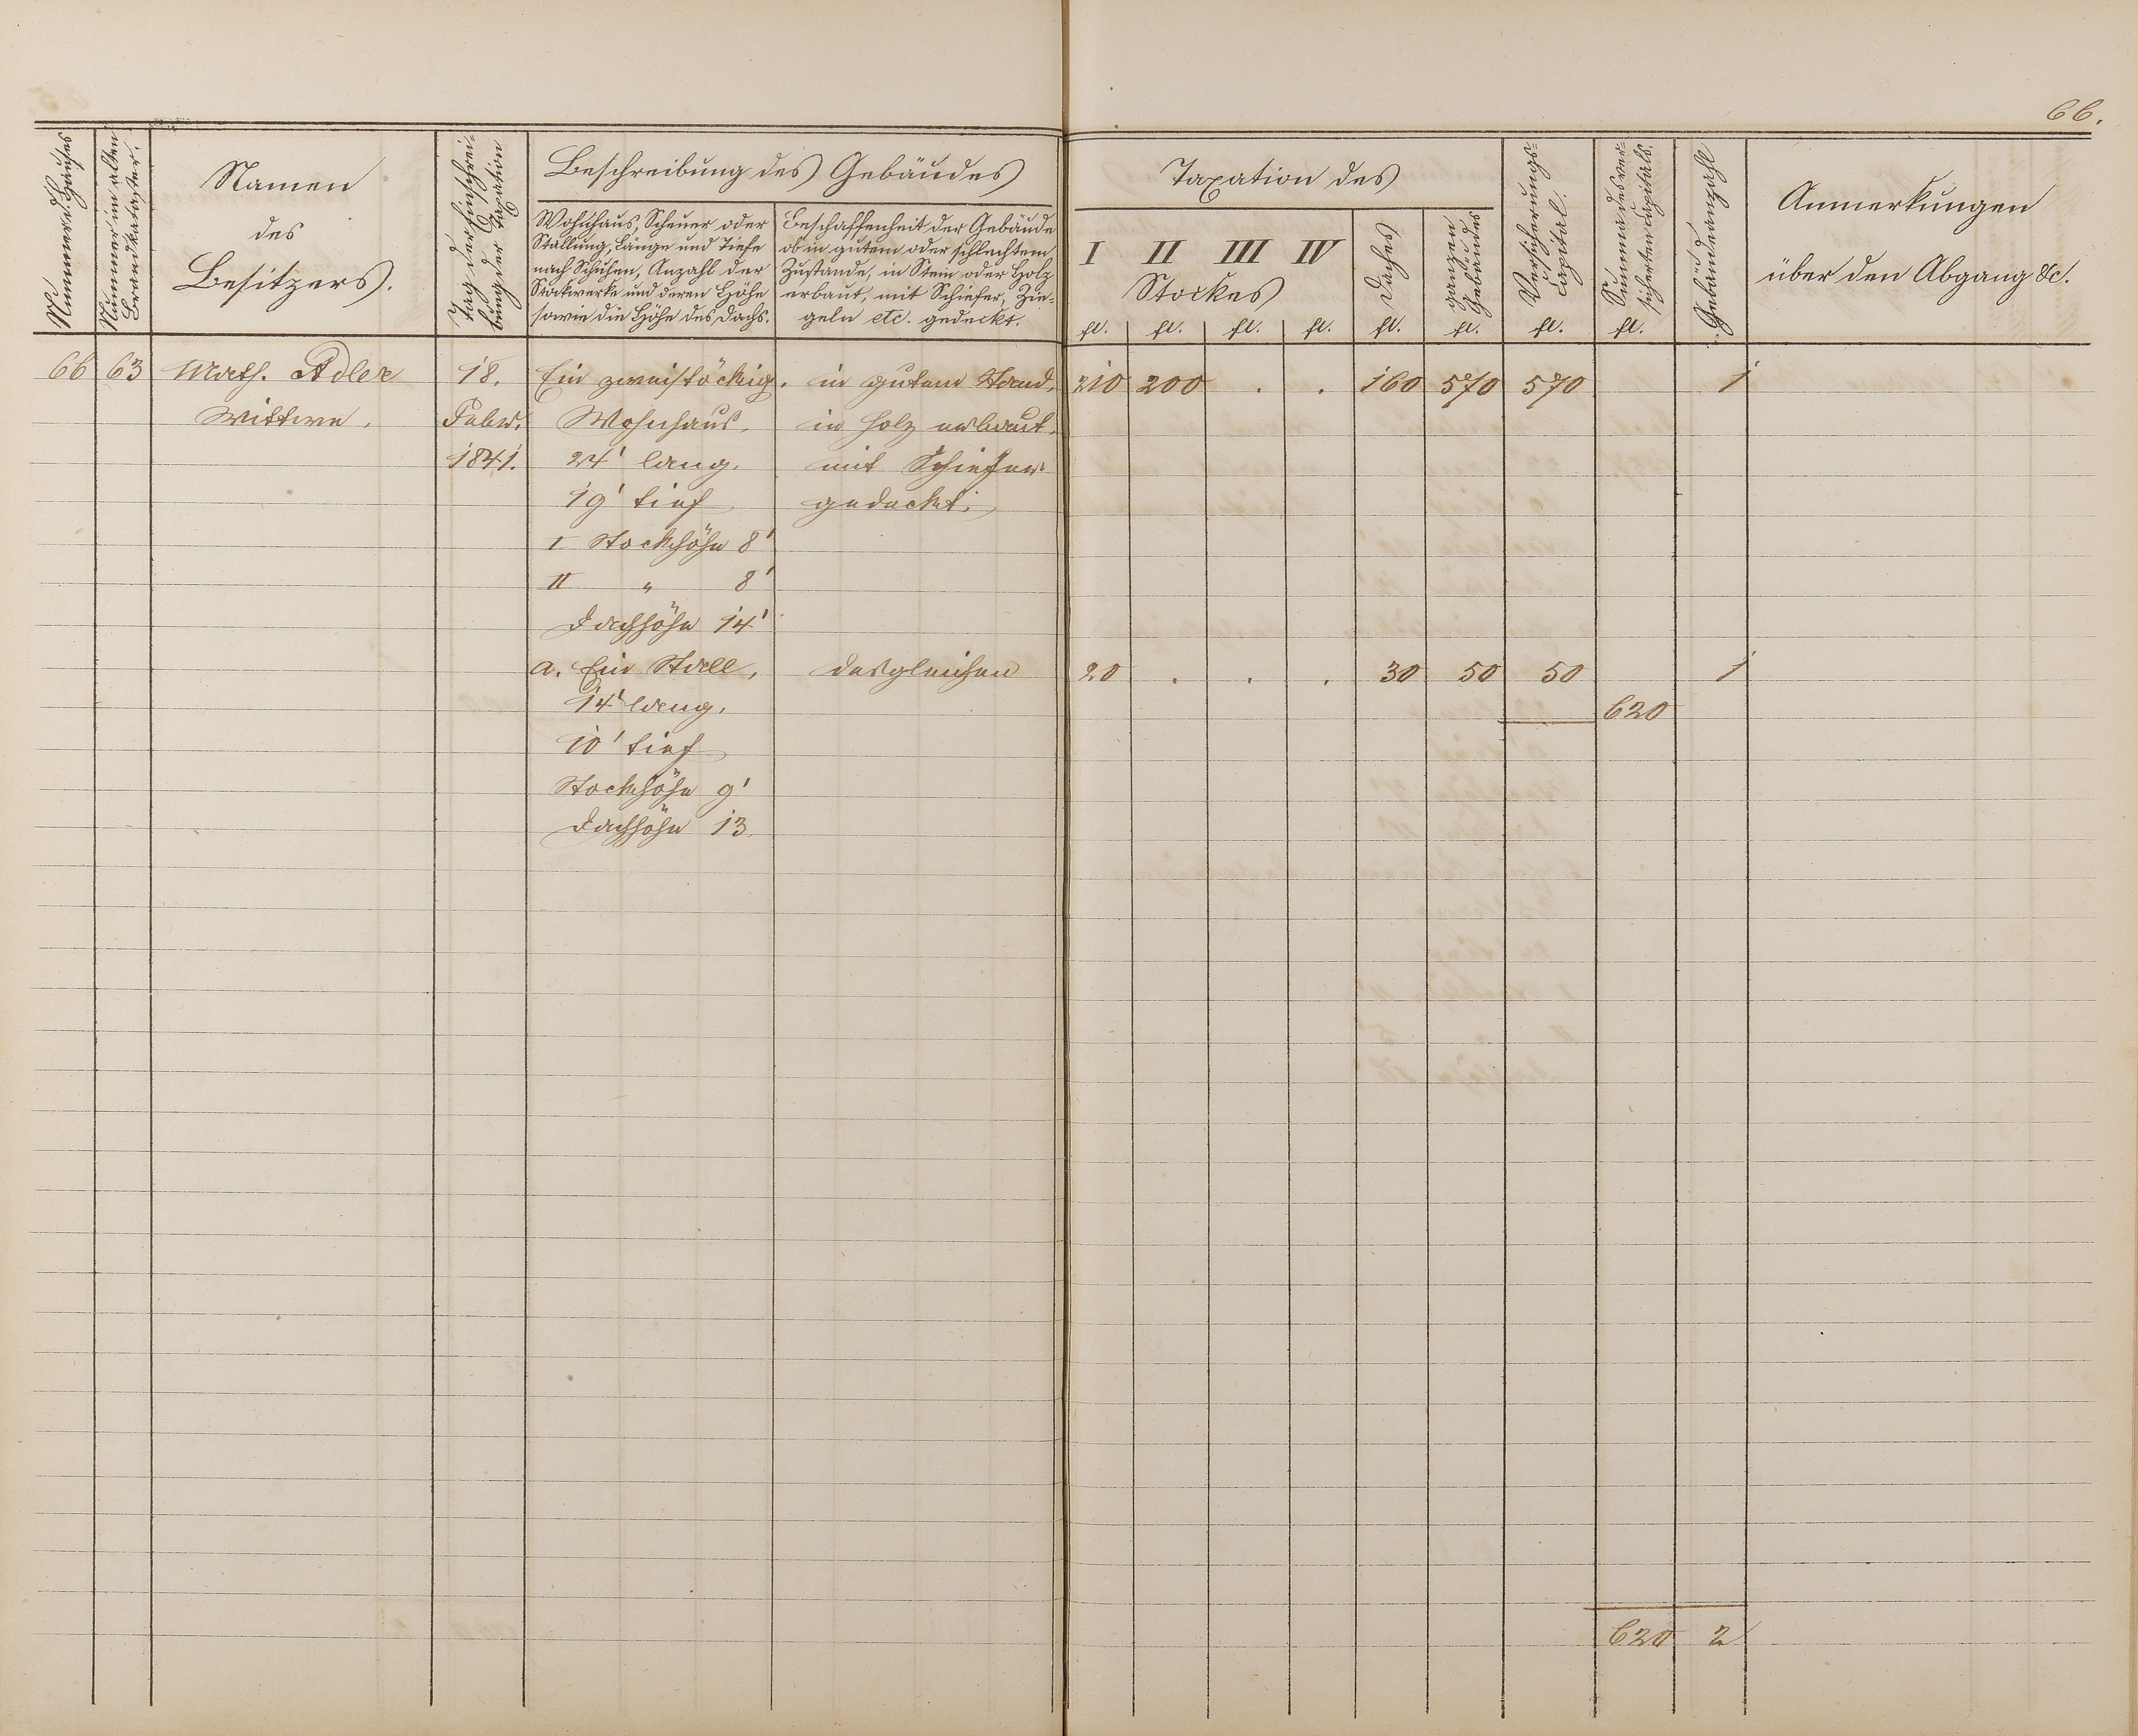 66.
Nummer d. Hauses
Nummer im alten
Brandkataster.
Namen
des
Besitzers.
Tag der Einschrei-
bung der Taxation
Beschreibung des Gebäudes
Wohnhaus, Scheuer oder
Stallung, Länge und Tiefe
nach Schuhen, Anzahl der
Stockwerke und deren Höhe
sowie die Höhe des Dachs.
Beschaffenheit der Gebäude
ob in gutem oder schlechtem
Zustande, in Stein oder Holz
erbaut, mit Schiefer, Zie-
geln etc. gedeckt.
Taxation des
I II III IV
Stockes
Daches
ganzen
Gebäudes
Versicherungs-
Capital.
Summa des ver-
sicherten Capitals.
Gebäudeanzahl
Anmerkungen
über den Abgang &c.
fl. fl. fl. fl. fl. fl. fl. fl.
66 63 Math. Adler 18. Ein zweistöckig. in gutem Stand, 210 200 . . 160 570 570 1
Wittwe. Febr. Wohnhaus. in Holz erbaut.
1841. 24' lang. mit Schiefer
19' tief gedeckt.
I Stockhöhe 8'
II " 8'
Dachhöhe 14'
a. Ein Stall, desgleichen 20 . . . 30 50 50 1
14' lang. 620
10' tief
Stockhöhe 9'
Dachhöhe 13.
620 2